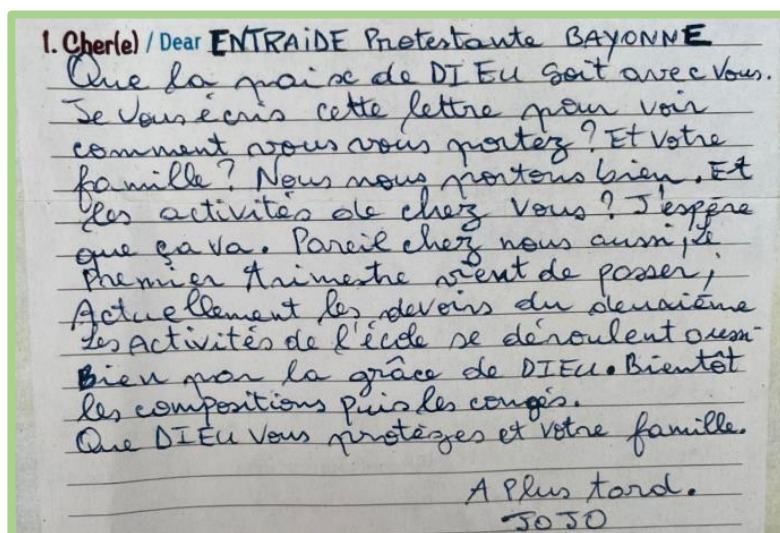 1. Cher(e) / Dear ENTRAIDE Protestante BAYONNE
Que la paix de DIEU soit avec vous.
Je vous écris cette lettre pour voir
comment vous vous portez? Et votre
famille? Nous nous portons bien. Et
les activités de chez vous? J'espère
que ça va. Pareil chez nous aussi, le
premier trimestre vient de passer,
Actuellement les devoirs du deuxième
Les activités de l'école se déroulent aussi-
Bien par la grâce de DIEU. Bientôt
les compositions puis les congés.
Que DIEU vous protèges et votre famille.
A Plus tard.
JOJO